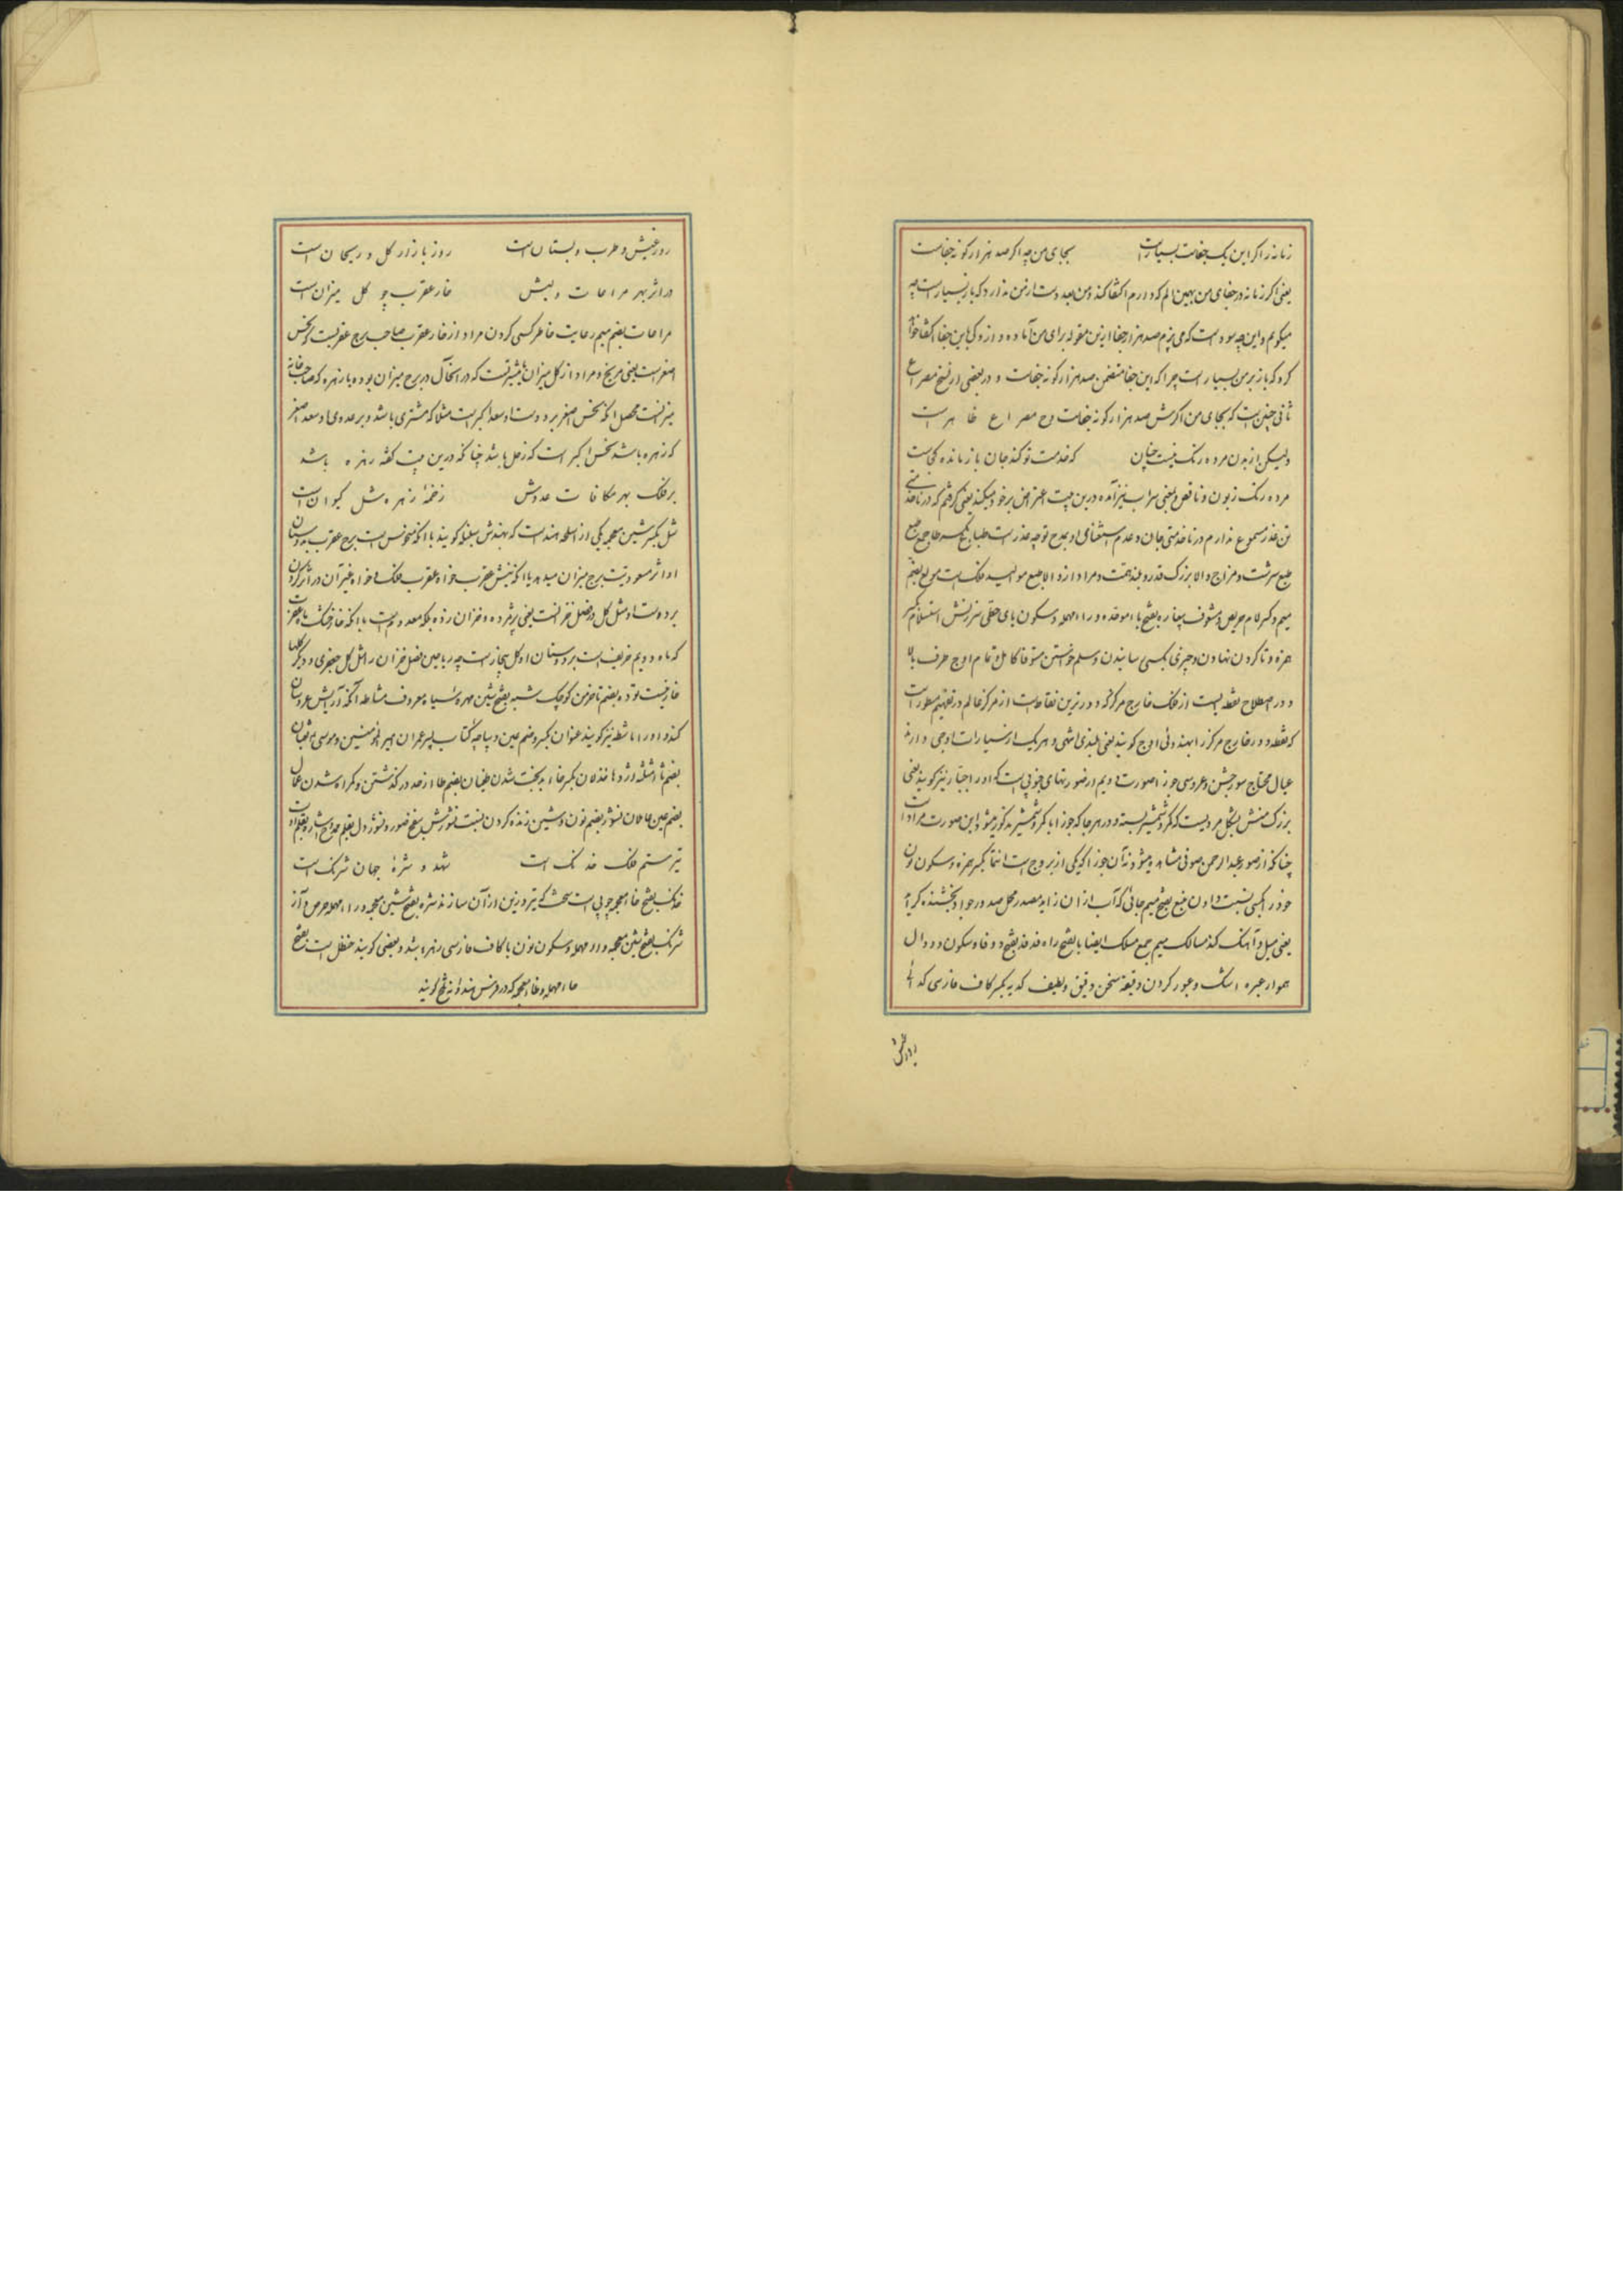 زمانه را اگر این یک جفاست بسیار است بجای من چه اگر صد هزار گونه جفاست
یعنی اگر زمانه در جفای من بهمین الم که دارم اکتفا کند و من بعد دست از من ندارد که باز بسیار است چه
میگویم و این چه سوداست که می پزم صد هزار جفا ازین مقوله برای من آماده دارد و کی باین جفا اکتفا خواهد
کرد که باز بر من بسیار است چرا که این جفا متضمن صد هزار گونه جفاست و در بعضی از نسخ مصراع
ثانی چنین است که بجای من اگرش صد هزار گونه جفاست و ح مصراع ظاهر است
ولیکن از بدن مرده رنگ نیست چنان که خدمت تو کند جان باز مانده کجاست
مرده رنگ زبون و ناقص و بمعنی سراب نیز آمده درین بیت اعتراض بر خود میکند یعنی گرفتم که در ناخدمتی
تن عذر مسموع ندارم در ناخدمتی جان و عدم استغنای او بمدح تو چه عذر است طبایع بکسر طا جمع طبع
طبع سرشت و مزاج والا بزرگ قدر و بلند همت و مراد از والا طبع موالید فلک است مولع بضم
میم و کسر لام حریص و مشوف بیغاره بفتح باء موحده و راء مهمله و سکون یای حطی سرزنش استلام بکسر
همزه و تا کردن نهادن و چیزی بکسی رسانیدن و سلم خواستن مستوفا کامل و تمام اوج طرف بالا
و در اصطلاح نقطه ایست از فلک خارج مرکز که دورترین نقاط است از مرکز عالم در تفهیم مسطور است
که نقطه دور خارج مرکز را بهندوئی اوج گویند یعنی بلندی اشی و هر یک از سیارات اوجی دارند
عیال محتاج سور جشن و عروسی جوزا صورت دویم از صورتهای جنوبی است که او را جبار نیز گویند یعنی
بزرگ منش بشکل مردیست که کمر و شمشیر بسته و در هر جا که جوزا با کمر و شمشیر مذکور میشود این صورت مراد است
چنانکه از صور عبدالرحمن صوفی مشاهده میشود نه آن جوزا که یکی از بروج است انتما بکسر همزه و سکون نون
خود را بکسی نسبت دادن منبع بفتح میم جائی که آب ازان زاید مصدر محل صدور جواد بخشنده کرایه
یعنی میل و آهنگ کند مسالک میم جمع مسلک ایضا با بفتح راه فدفد بفتح دو فا و سکون دو دال
هموار عبره اشک و عبور کردن دقیقه سخن دقیق و لطیف کدیه بکسر کاف فارسی گدائی
روز عیش
روز عیش و طرب و بستان است روز بازار گل و ریحان است
در اثر بهر مراعات ولیش خار عقرب چو گل میزان است
مراعات بضم میم رعایت خاطر کسی کردن مراد از خار عقرب صاحب برج عقربست که نحس
اصغر است یعنی مریخ و مراد از گل میزان مشتریست که در آنحال در برج میزان بوده یا زهره که صاحب خانه
میزانست محصل آنکه نحس اصغر بر دوست او سعد اکبر است مثلا که مشتری باشد و بر عدوی او سعد اصغر
که زهره باشد نحس اکبر است که زحل باشد چنانکه درین بیت گفته زهره باشد
بر فلک بهر مکافات عدوش زخمهٔ زهره شل کیوان است
شل بکسر شین معجمه یکی از اسلحه هند است که بهندش سیله گویند با آنکه منحوس است برج عقرب بدوستان
او اثر مسعودیت برج میزان میدهد یا آنکه نیش عقرب خواه عقرب فلک و خواه غیر آن در اثر کردن
بر دوست او مثل گل در فصل خزانست یعنی پژمرده و خزان زده بلکه معدوم است با آنکه خار خشک ماه عقرب
که ماه دویم خریف است بر دوستان او گل بیخار است چه ریاحین فصل خزان را مثل گل جعفری و دیگر گلها
خار نیست توده بضم تا خرمن کوچک شبه بفتح شین مهره سیاه معروف مشاطه آنکه آرایش عروسان
کند و او را ماشطه نیز گویند عنوان بکسر و ضم عین دیباچه کتاب پسر عمران موسی ثعبان
بضم ثاء مثلثه اژدها خذلان بکسر خاء بدبخت شدن طغیان بضم طا از حد در گذشتن و گمراه شدن عمال
بضم عین عاملان نشور بضم نون و شین زنده کردن
تیر ستم فلک خدنگ است شهد و شرهٔ جهان شرنگ است
خدنگ بفتح خاء معجمه چوبی است سخت که تیر و زین از آن سازند شره بفتح شین معجمه و راء مهمله حرص و آز
شرنگ بفتح شین معجمه و راء مهمله و سکون نون با کاف فارسی زهر باشد و بعضی گویند حنظل است بفتح
حاء مهمله و ظاء معجمه که در فرس هندوانه تلخ گویند